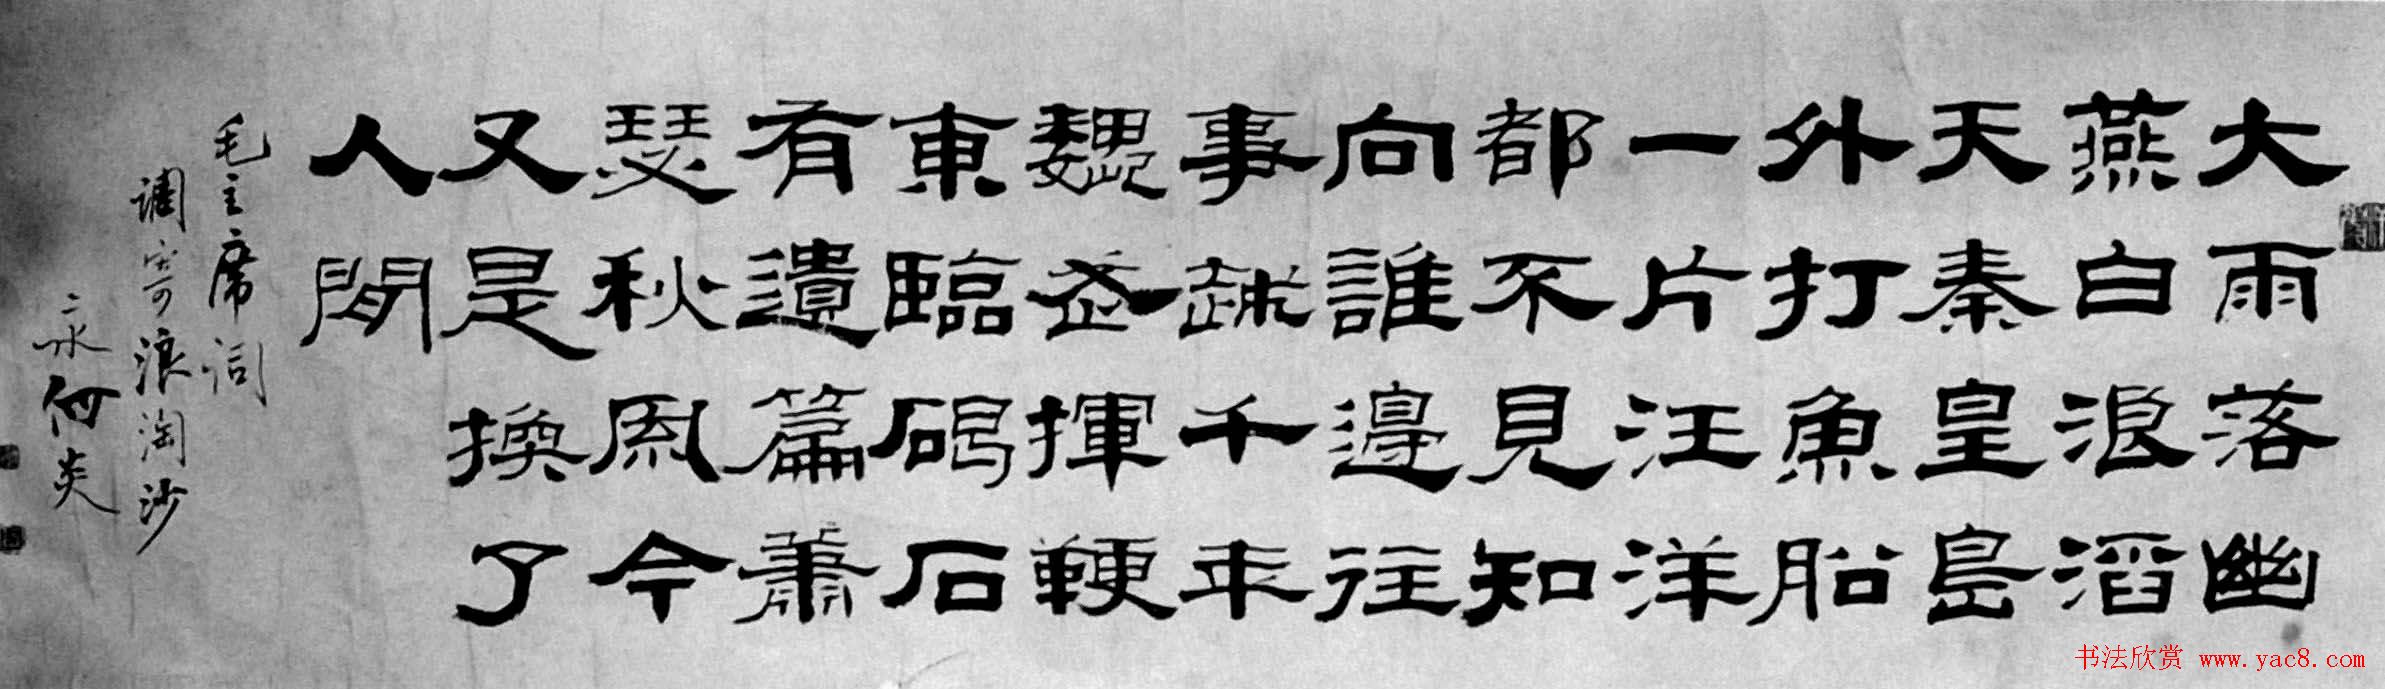 大雨落幽
燕白浪滔
天秦皇島
外打魚船
一片汪洋
都不見知
向誰邊往
事越千年
魏武揮鞭
東臨碣石
有遺篇蕭
瑟秋風今
又是換了
人間
毛主席词
调寄浪淘沙
何炎
书法欣赏 www.yac8.com